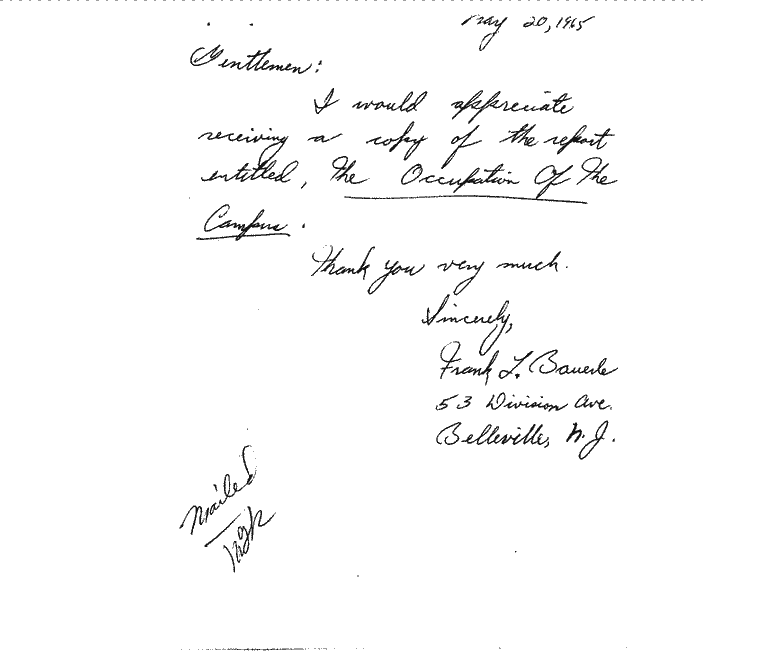 May 20, 1965
Gentlemen:
I would appreciate
receiving a copy of the report
entitled, The Occupation Of The
Campus.
Thank you very much.
Sincerely,
Frank L. Bauerle
53 Division Ave.
Belleville, N.J.
Mailed